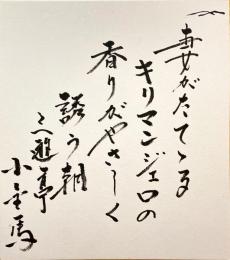 妻がたてゝる
キリマンジェロの
香りがやさしく
誘う朝
三遊亭
小金馬